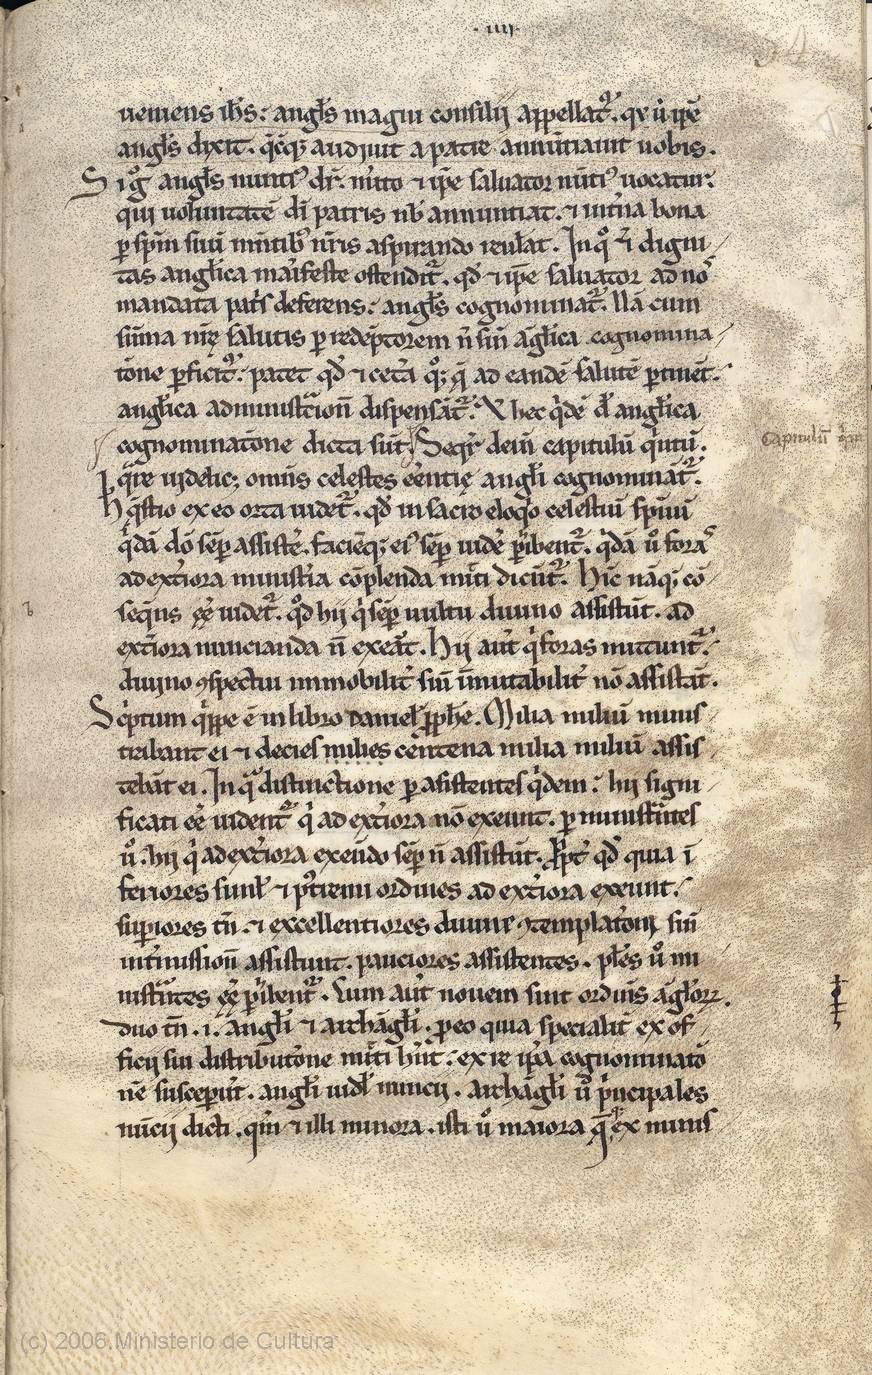 · iiij ·
54
ueniens ih̅s: angl̅s magni consilij appellat᷑. qr u̾ ip̅e
angl̅s dixit. q̅cq; audiuit a patre annuntiauit uobis.
Sig̊ angl̅s nunti᷒ dr̅. m̾ito ⁊ ip̅e saluator nu̅ti᷒ uocatur.
qui uoluntate̅ di̅ patris nob̅ annuntiat. ⁊ int̾na bona
p̲ sp̅m suu̅ m̅tib᷒ n̅ris aspirando reuelat. In q̊ ⁊ digni
tas angl̅ica manifeste ostendit᷑. qd̅ ⁊ ip̅e saluator ad nos
mandata pat̾s deferens: angl̅s cognominat᷑. Na̅ cum
su̅ma n̅rę salutis p̲ rede̅ptorem n̅ sin̅ a̅gl̅ica cognomina
t̅one p̲ficit᷑. patet qd̅ ⁊ cet̾a q̊; q̅ ad eande̅ salute̅ p̲tine̅t.
angl̅ica administ̾tion̅ dispensa̅t᷑. Et hec q̾de̅ d̅ angl̅ica
cognominat̅one dicta su̅t. Seqr̅ dein̅ capitulu̅ q̾ntu̅.
Capitulu̅
q̅re uidelic; omn̅s celestes ee̅ntię angl̅i cognomina̅t᷑.
Hęc q̅stio ex eo orta uidet᷑. qd̅ in sacro eloq̾o celestiu̅ sp̅uu̅
q̾da̅ do̅ se̅p assist̾e. facie̅q; ei᷒ se̅p uid̾e p̲hibent᷑. q̾da̅ u̾o foras
ad ext̾iora minist̾ia co̅plenda mitti dicu̅t᷑. Hinc na̅q; co̅
seq̅ns ee̅ uidet᷑. qd̅ hij q̾ se̅p uultu diuino assistu̅t. ad
ext̾iora nuncianda n̅ exea̅t. Hij aut̅ q̾ foras mittunt᷑.
diuino ꝯspectui immobilit̾ siu̅ i̅mutabilit̾ no̅ assista̅t.
Sc̾ptum q̾ppe e̅ in libro daniel̅ p̲ph̅e. Milia miliu̅ minis
trabant ei ⁊ decies milies centena milia miliu̅ assis
teba̅t ei. In q̾ distinctione p̲ assistentes q̾dem: hij signi
ficati ee̅ uident᷑ q̾ ad ext̾iora no̅ exeunt. p̲ minist̾ntes
u̾o. hij q̾ ad ext̾iora exeu̅do se̅p n̅ assistu̅t. P̲pt̾ qd̅ quia i̅
feriores simul ⁊ p̾tremi ordines ad ext̾iora exeunt:
sup̲iores tn̅ ⁊ excellentiores diuine ꝯtemplat̅oni sin̅
int̾mission̅ assistunt. pauciores assistentes. pl̅es u̾o mi
nist̾ntes ee̅ p̲hibent᷑. Cum aut̅ nouem sint ordin̅s a̅gl̅orꝝ.
duo tn̅ .i. angl̅i ⁊ archa̅gl̅i. p̲ eo quia specialit̾ ex of
ficij sui distribut̅one mitti h̅nt: ex re ip̅a cognominatio
ne̅ suscep̲u̅t. angl̅i uidl̅ nuncij. archa̅gl̅i u̾o p̾ncipales
nu̅cij dicti. qm̅ ⁊ illi minora. isti u̾o maiora q̅; ex minis